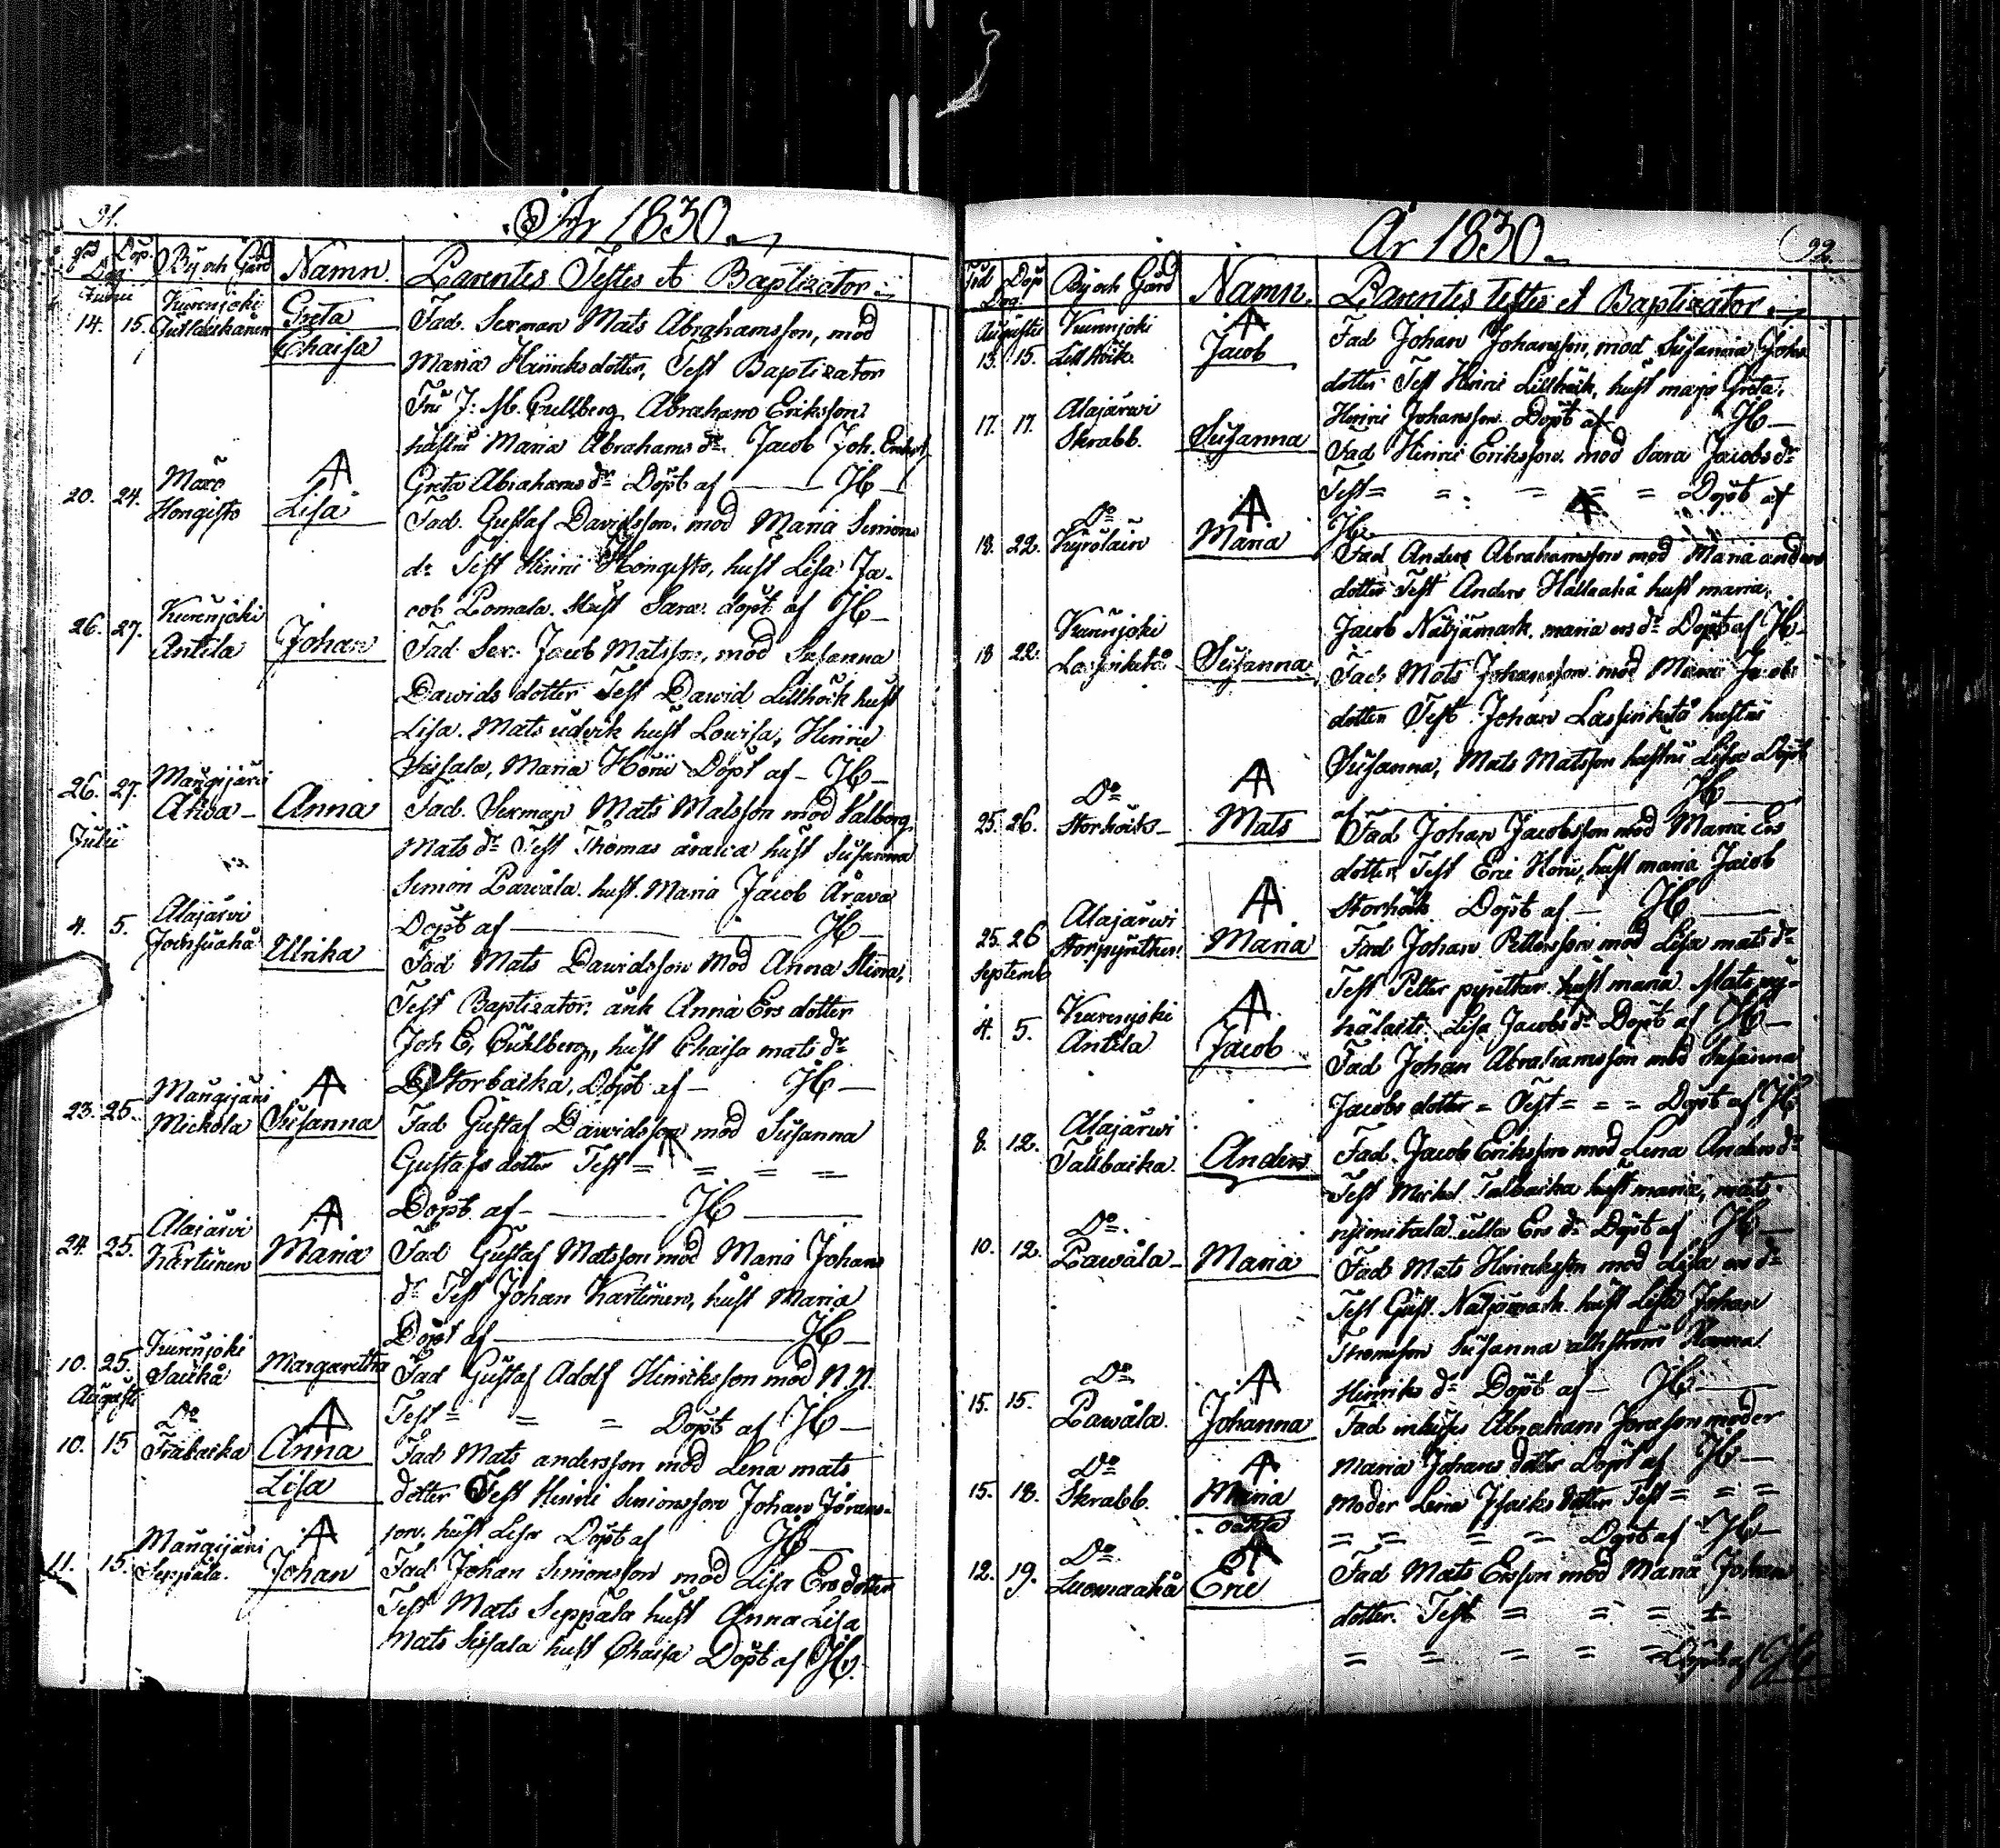 91.
År 1830.
Dag
Döp.
By och Gård
Namn.
Parentes Testes et Baptizator
Junii
14. 15. Kurenjoki
Greta
Chaisa
Fad. Sexman Mats Abrahamsson, mod
Maria Hinriksdotter, Test Baptizator
Fru J: M. Abraham Eriksson
hustru Maria Abrahams dr. Jacob Joh.
Greta Abrahams dr Döpt af — JH —
20. 24. Hongisto
Lisa
Fad. Gustaf Davidsson, mod Maria Simons
dr Test Hinric Hongisto, hust Lisa Ja-
cob Pomala. Hust Sara. döpt af JH —
26. 27. Kurenjoki
Antila
Johan
Fad. Sex. Jacob Matsson, mod Susanna
Dawids dotter Test Dawid Lillhöik hust
Lisa. Mats hust Lowisa, Hinric
Sissala, Maria Döpt af — JH —
26. 27. Mangijärvi
Anna
Fad. Sexman Mats Matsson mod Valborg
Mats dr Test Thomas hust Susanna
Simon Pawåla hust Maria Jacob
Döpt af — JH —
Julii
4. 5. Alajärvi
Ulrika
Fad Mats Dawidsson Mod Anna Stina,
Test Baptizator. änk Anna Ers dotter
Joh E, hust Chaisa mats dr
Storbacka, Döpt af — JH —
23. 25. Mangijärvi
Mickola
Susanna
Fad Gustaf Dawidsson mod Susanna
Gustafs dotter Test = = = =
Döpt af — JH —
24. 25. Alajärvi
Kartunen
Maria
Fad Gustaf Matsson mod Maria Johans
dr Test Johan Kartunen, hust Maria
Döpt af — JH —
10. 25. Kurenjoki
Margaretha
Fad Gustaf Adolf Hinriksson mod N.N.
Test = = = Döpt af JH —
Augusti
10. 15 Do
Träbacka
Anna
Lisa
Fad Mats andersson mod Lena mats
dotter Test Hinric Simonsson Johan Jörans-
son. hust Lisa Döpt af JH —
11. 15. Mangijärvi
Seppala.
Johan
Fad Johan Simonsson mod Lisa Ers dotter
Test Mats Seppäla hust Anna Lisa
Mats Sissala hust Chaisa Döpt af JH.
92.
År 1830.
Föd Döp
Dag
By och Gård
Namn.
Parentes testes et Baptizator.
Augusti
13. 15. Kurenjoki
Lillhöik.
Jacob
Fad Johan Johansson, mod Susanna Johs
dotter. Test Hinric Lillhöik, hust maja Greta.
Hinric Johansson Döpt af JH —
17. 17. Alajärwi
Skrabb.
Susanna
Fad Hinric Eriksson. mod Sara Jacobs dr
Test = = = = = Döpt af
JH
18. 22. Do
Kyrölain
Maria
Fad Anders Abrahamsson mod Maria anders
dotter Test Anders hust maria,
Jacob Nätjämark. maria ers dr Döpt af JH —
18 22. Kurenjoki
Susanna
Fad. Mats Johansson mod Maria Jacobs
dotter Test Johan hustru
Susanna, Mats Matsson hustru Lisa Döpt
af JH —
25. 26. Do
Storhöik —
Mats
Fad Johan Jacobsson mod Maria Ers
dotter, Test Eric hust maria Jacob
Storhöik Döpt af — JH —
25. 26 Alajärwi
Maria
Fad Johan Pettersson mod Lisa mats dr
Test Petter hust maria Mats
Lisa Jacobs dr Döpt af JH —
Septemb
4. 5. Kurenjoki
Antila
Jacob
Fad Johan Abrahamsson mod Susanna
Jacobs dotter = Test = = = Döpt af JH
8. 12. Alajärwi
Tallbacka.
Anders
Fad. Jacob Eriksson mod Lena Anders dr
Test Mickel Talbacka hust maria, mats
ulla Ers dr Döpt af JH —
10. 12. Do.
Pawåla —
Maria
Fad Mats Hinriksson mod Lisa ers dr
Test Gust. Nätjämark hust Lisa Johan
Thomsson Susanna Hanna
Hinriks dr Döpt af — JH —
15. 15. Do
Pawåla.
Johanna
Fad Abraham moder
Maria Johans dotter Döpt af JH —
15. 18. Do
Skrabb.
Maria
oäkta
Moder Lena Isaks dotter Test = = =
= = = = Döpt af JH —
12. 19. Do
Luomaahå
Eric
Fad Mats Ersson mod Maria Johans
dotter. Test = = = =
= = = = = Döpt af JH